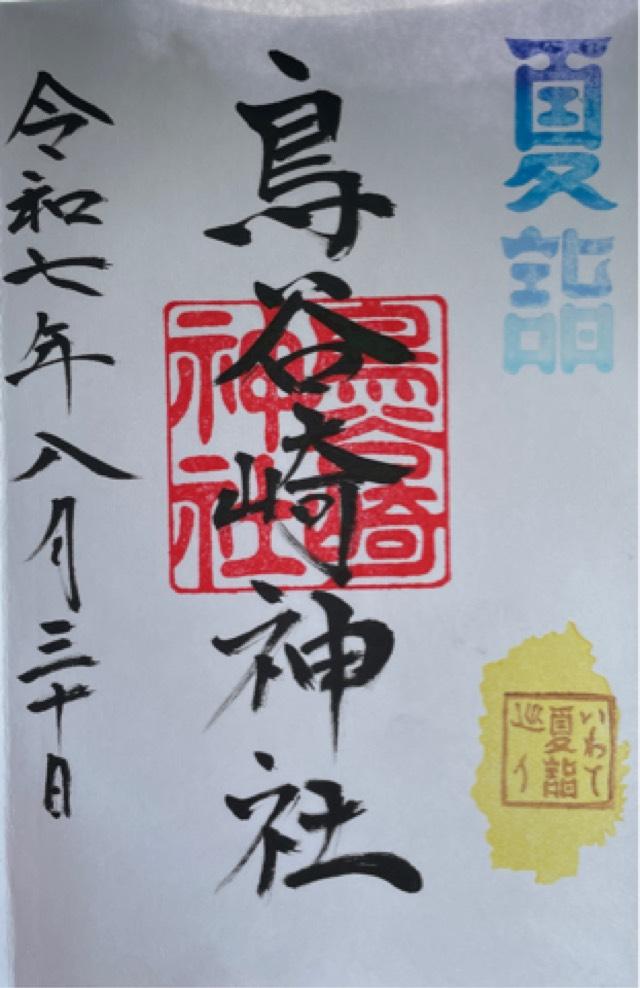 夏詣
いわて
夏詣
巡り
鳥谷崎神社
鳥谷崎
神社
令和七年八月三十日